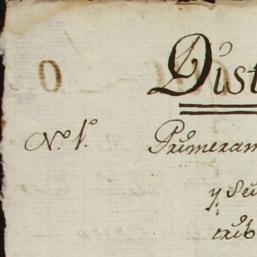 0 Dist
N.º 1.º Primeram
y Su
trib